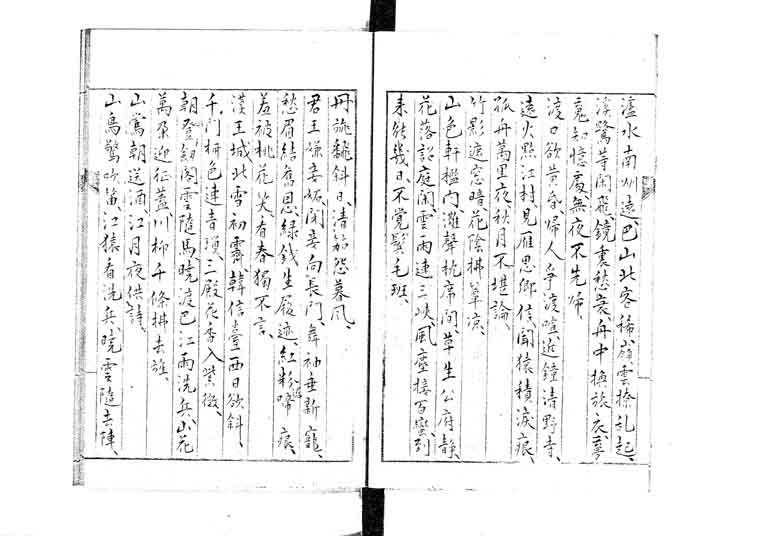 瀘水南州遠、巴山北客稀、嶺雲撩乱起、
溪鷺等閑飛、鏡裏愁衰、舟中換旅衣、夢
魂知憶處、無夜不先帰、
渡口欲黄昏、帰人争渡喧、近鐘清野寺、
遠火點江村、見雁思郷信、聞猿積淚痕、
孤舟萬里夜、秋月不堪論、
竹影遮窓暗、花陰拂簟凉、
山色軒檻内、灘聲枕席間、草生公府静、
花落訟庭閑、雲雨連三峡、風塵接百蠻、到
来能幾日、不覚鬢毛班、
丹旐飜斜日、清笳怨暮風、
君王嫌妾妬、閉妾向長門、舞袖垂新寵、
愁眉結舊恩、緑銭生履迹、紅粉啼痕、
羞被桃花笑、看春獨不言、
漢王城北雪初霽、韓信臺西日欲斜、
千門柳色連青瑣、二殿花香入紫微、
朝登劔閣雲隨馬、曉渡巴江雨洗兵、山花
萬朶迎征盖、川柳千條拂去旌、
山鶯朝送酒、江月夜供詩、
山鳥驚吹笛、江猿看洗兵、曉雲隨去陣、